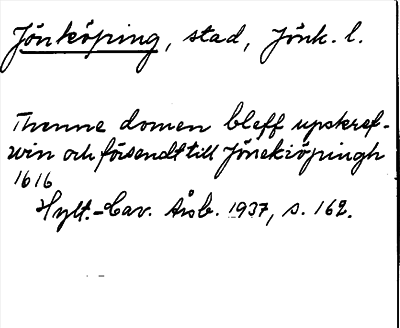 Jönköping, stad, Jönk. l.
Thenne domen bleff upskref-
win och försendt till Jönekiöpingh
1616
Hylt.-Cav. Årsb. 1937, s. 162.